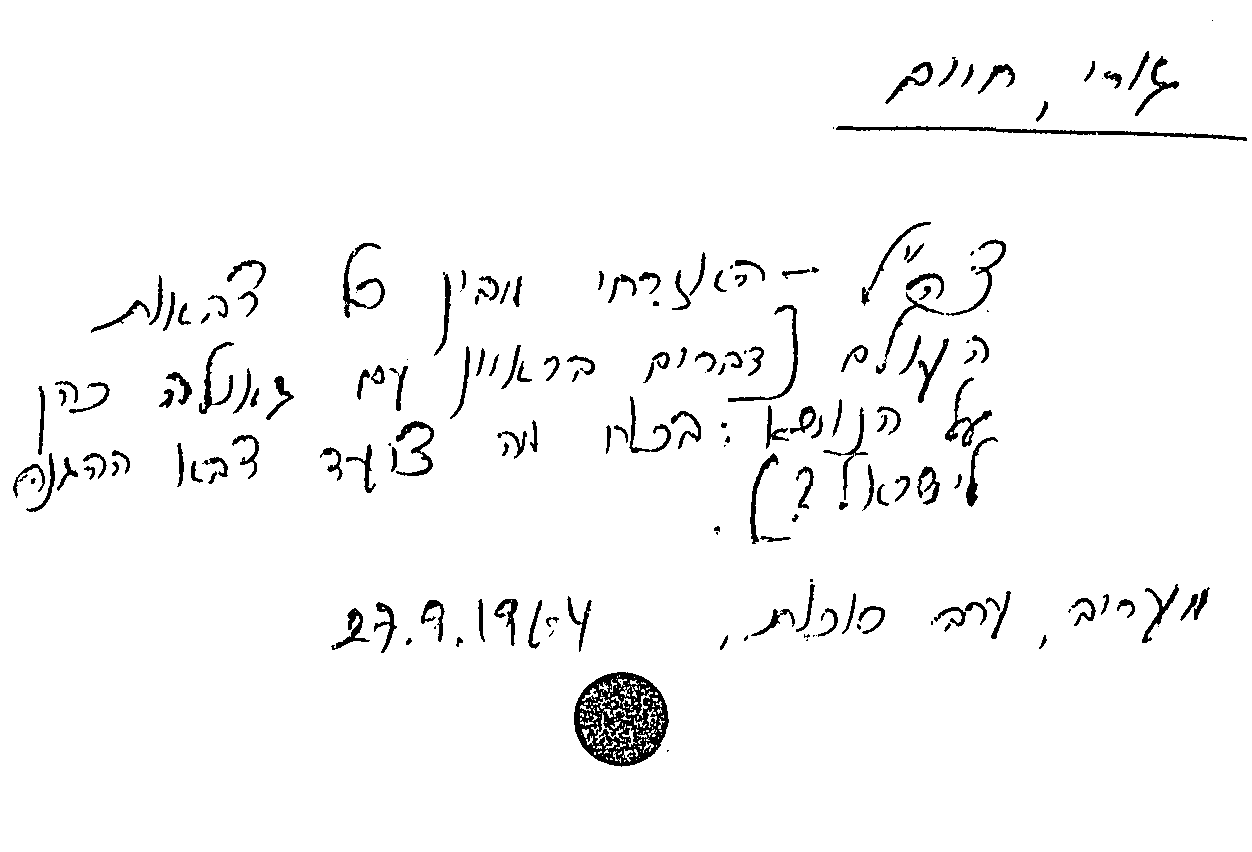 גורי, חיים
צה"ל – האזרחי מבין כל צבאות
העולם [דברים בראיון עם גאולה כהן
על הנושא: בכוח מה צועד צבא ההגנה
לישראל?].
מעריב, ערב סוכות, 27.9.1964